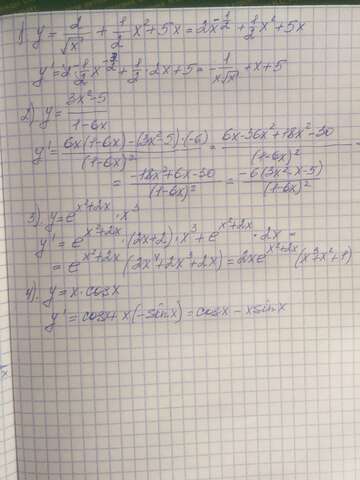 1) y = 2/√x + 1/2 x² + 5x = 2x^(-1/2) + 1/2 x² + 5x
y' = 2·(-1/2) x^(-3/2) + 1/2 · 2x + 5 = -1/(x√x) + x + 5
2) y = (3x²-5)/(1-6x)
y' = (6x(1-6x) - (3x²-5)·(-6))/(1-6x)² = (6x-36x²+18x²-30)/(1-6x)² =
= (-18x²+6x-30)/(1-6x)² = (-6(3x²-x-5))/(1-6x)²
3) y = e^(x²+2x) · x³
y' = e^(x²+2x) · (2x+2) · x³ + e^(x²+2x) · 2x =
= e^(x²+2x) (2x⁴+2x³+2x) = 2xe^(x²+2x) (x³+x²+1)
4). y = x · cosx
y' = cosx + x(-sinx) = cosx - xsinx